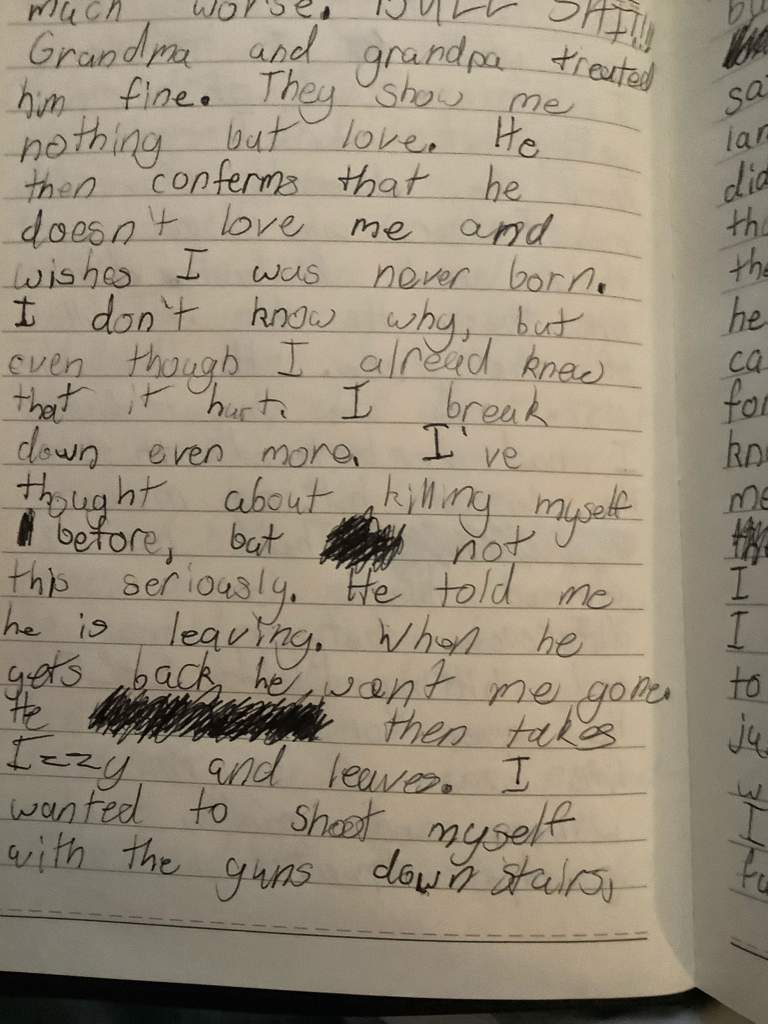 much worse. BULL SHIT!!!
Grandma and grandpa treated
him fine. They show me
nothing but love. He
then conferms that he
doesn't love me and
wishes I was never born.
I don't know why, but
even though I alread knew
that it hurt. I break
down even more. I've
thought about killing myself
before, but not
this seriously. He told me
he is leaving. When he
gets back he want me gone.
He then takes
Izzy and leaves. I
wanted to shoot myself
with the guns down stairs,
sa
lan
did
the
he
ca
for
kn
me
I
I
to
ju
w
I
fu